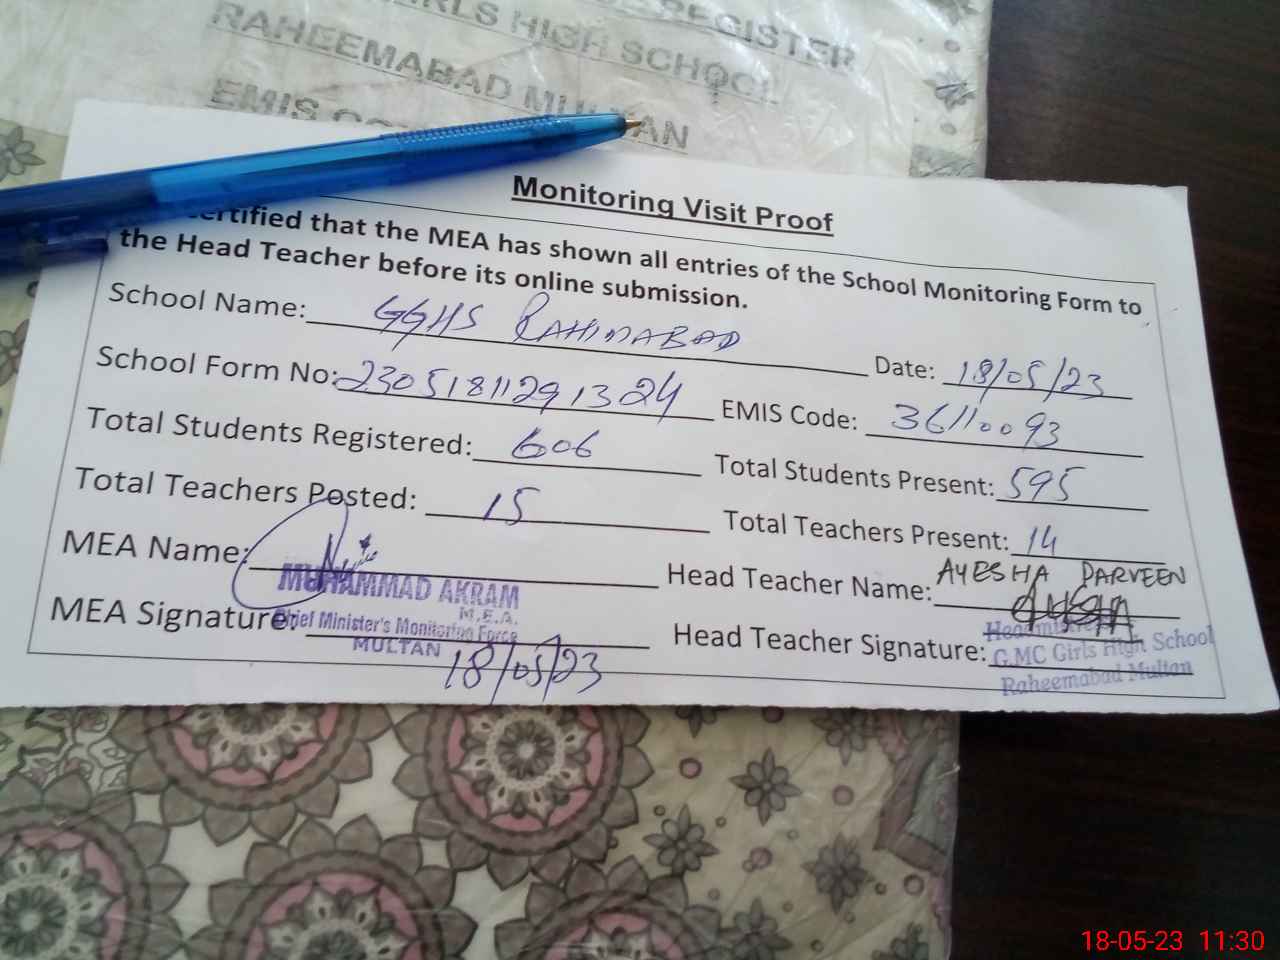 REGISTER
GIRLS HIGH SCHOOL
RAHEEMABAD MULTAN
EMIS
Monitoring Visit Proof
certified that the MEA has shown all entries of the School Monitoring Form to
the Head Teacher before its online submission.
School Name: GGHS RAHIMABAD Date: 18/05/23
School Form No: 230518112913 24 EMIS Code: 36110093
Total Students Registered: 606 Total Students Present: 595
Total Teachers Posted: 15 Total Teachers Present: 14
MEA Name: Head Teacher Name: AYESHA PARVEEN
MUHAMMAD AKRAM
M.E.A.
Chief Minister's Monitoring Force
MULTAN
MEA Signature: 18/05/23 Head Teacher Signature:
Headmistress
G.MC Girls High School
Raheemabad Multan
18-05-23 11:30